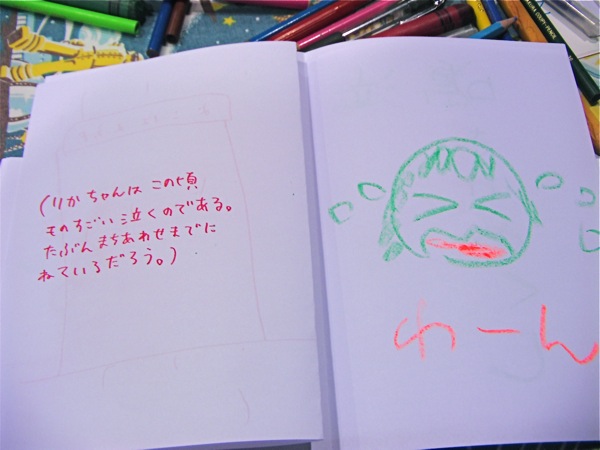 (りかちゃんは この頃
ものすごい泣くのである。
たぶんまちあわせまでに
ねているだろう。)
わーん